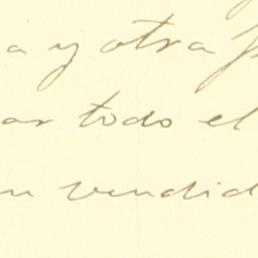 a y otra
ar todo el
n vendid